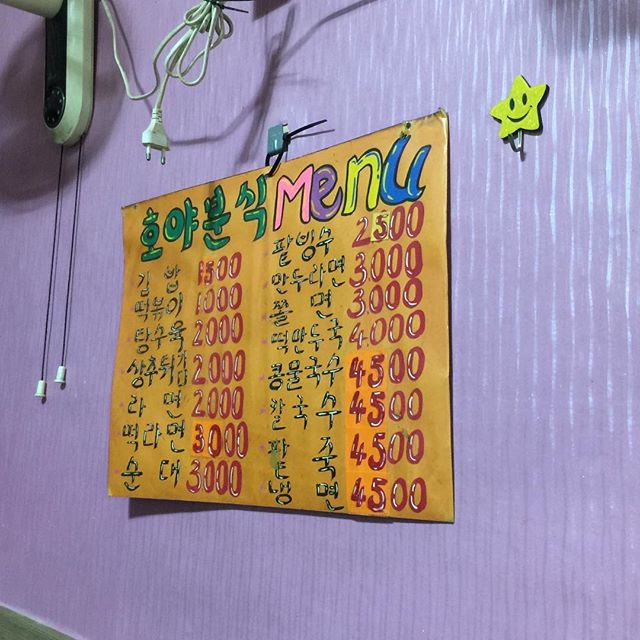 호야분식 Menu
김밥 1500
떡볶이 1000
탕수육 2000
상추튀김 2000
라면 2000
떡라면 3000
순대 3000
팥빙수 2500
만두라면 3000
쫄면 3000
떡만두국 4000
콩물국수 4500
칼국수 4500
팥죽 4500
냉면 4500